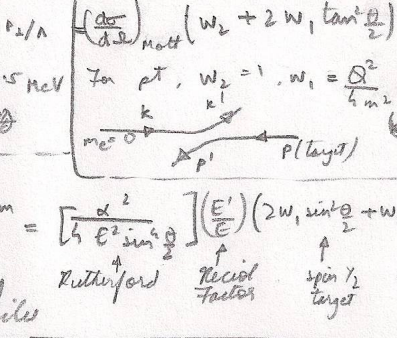 P2/A (dσ/dΩ)Mott (W2 + 2 W1 tan² θ/2)
.5 MeV For pt, W2 = 1, W1 = Q²/4m²
k k'
me=0 P(target)
P'
m = [α²/4 E² sin⁴ θ/2] (E'/E) (2W1 sin² θ/2 + W
Rutherford Recoil Factor spin ½ target